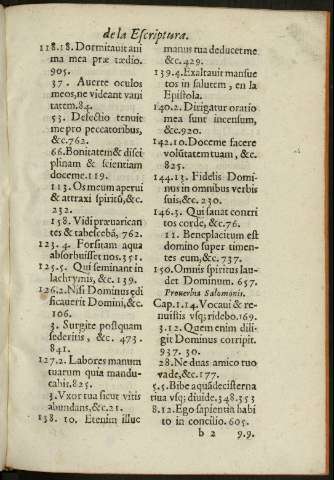 de la Escriptura.
118.18. Dormitauit ani
ma mea præ tædio.
905.
37. Auerte oculos
meos, ne videant vani
tatem.84.
53. Defectio tenuit
me pro peccatoribus,
&c.762.
66. Bonitatem & disci
plinam & scientiam
doceme.119.
113. Os meum aperui
& attraxi spiritũ, &c.
232.
158. Vidi præuarican
tes & tabescebã, 762.
123.4. Forsitam aqua
absorbuisset nos.351.
125.5. Qui seminant in
lachrymis, &c. 139.
126.2. Nisi Dominus ędi
ficauerit Domini, &c.
106.
3. Surgite postquam
sederitis, &c. 473.
841.
127.2. Labores manum
tuarum quia mandu-
cabit.825.
3. Vxor tua sicut vitis
abundans, &c.21.
138. 10. Etenim illuc
manus tua deducet me
&c.429.
139.4. Exaltauit mansue
tos in salutem, en la
Epistola.
140.2. Dirigatur oratio
mea sunt incensum,
&c.920.
142.10. Doceme facere
volũtatem tuam, &c.
825.
144.13. Fidelis Domi-
nus in omnibus verbis
suis, &c. 230.
146.3. Qui sanat contri
tos corde, &c.76.
11. Beneplacitum est
domino super timen-
tes eum, &c.737.
150. Omnis spiritus lau-
det Dominum. 657.
Prouerbia Salomonis.
Cap.1.14. Vocaui & re-
nuistis vsq; ridebo.169.
3.12. Quem enim dili-
git Dominus corripit.
937. 30.
28. Ne duas amico tuo
vade, &c.177.
5.5. Bibe aquã decisterna
tiua vsq; diuide.348.353
8.12. Ego sapientia habi
to in concilio.605.
b 2 9.9.